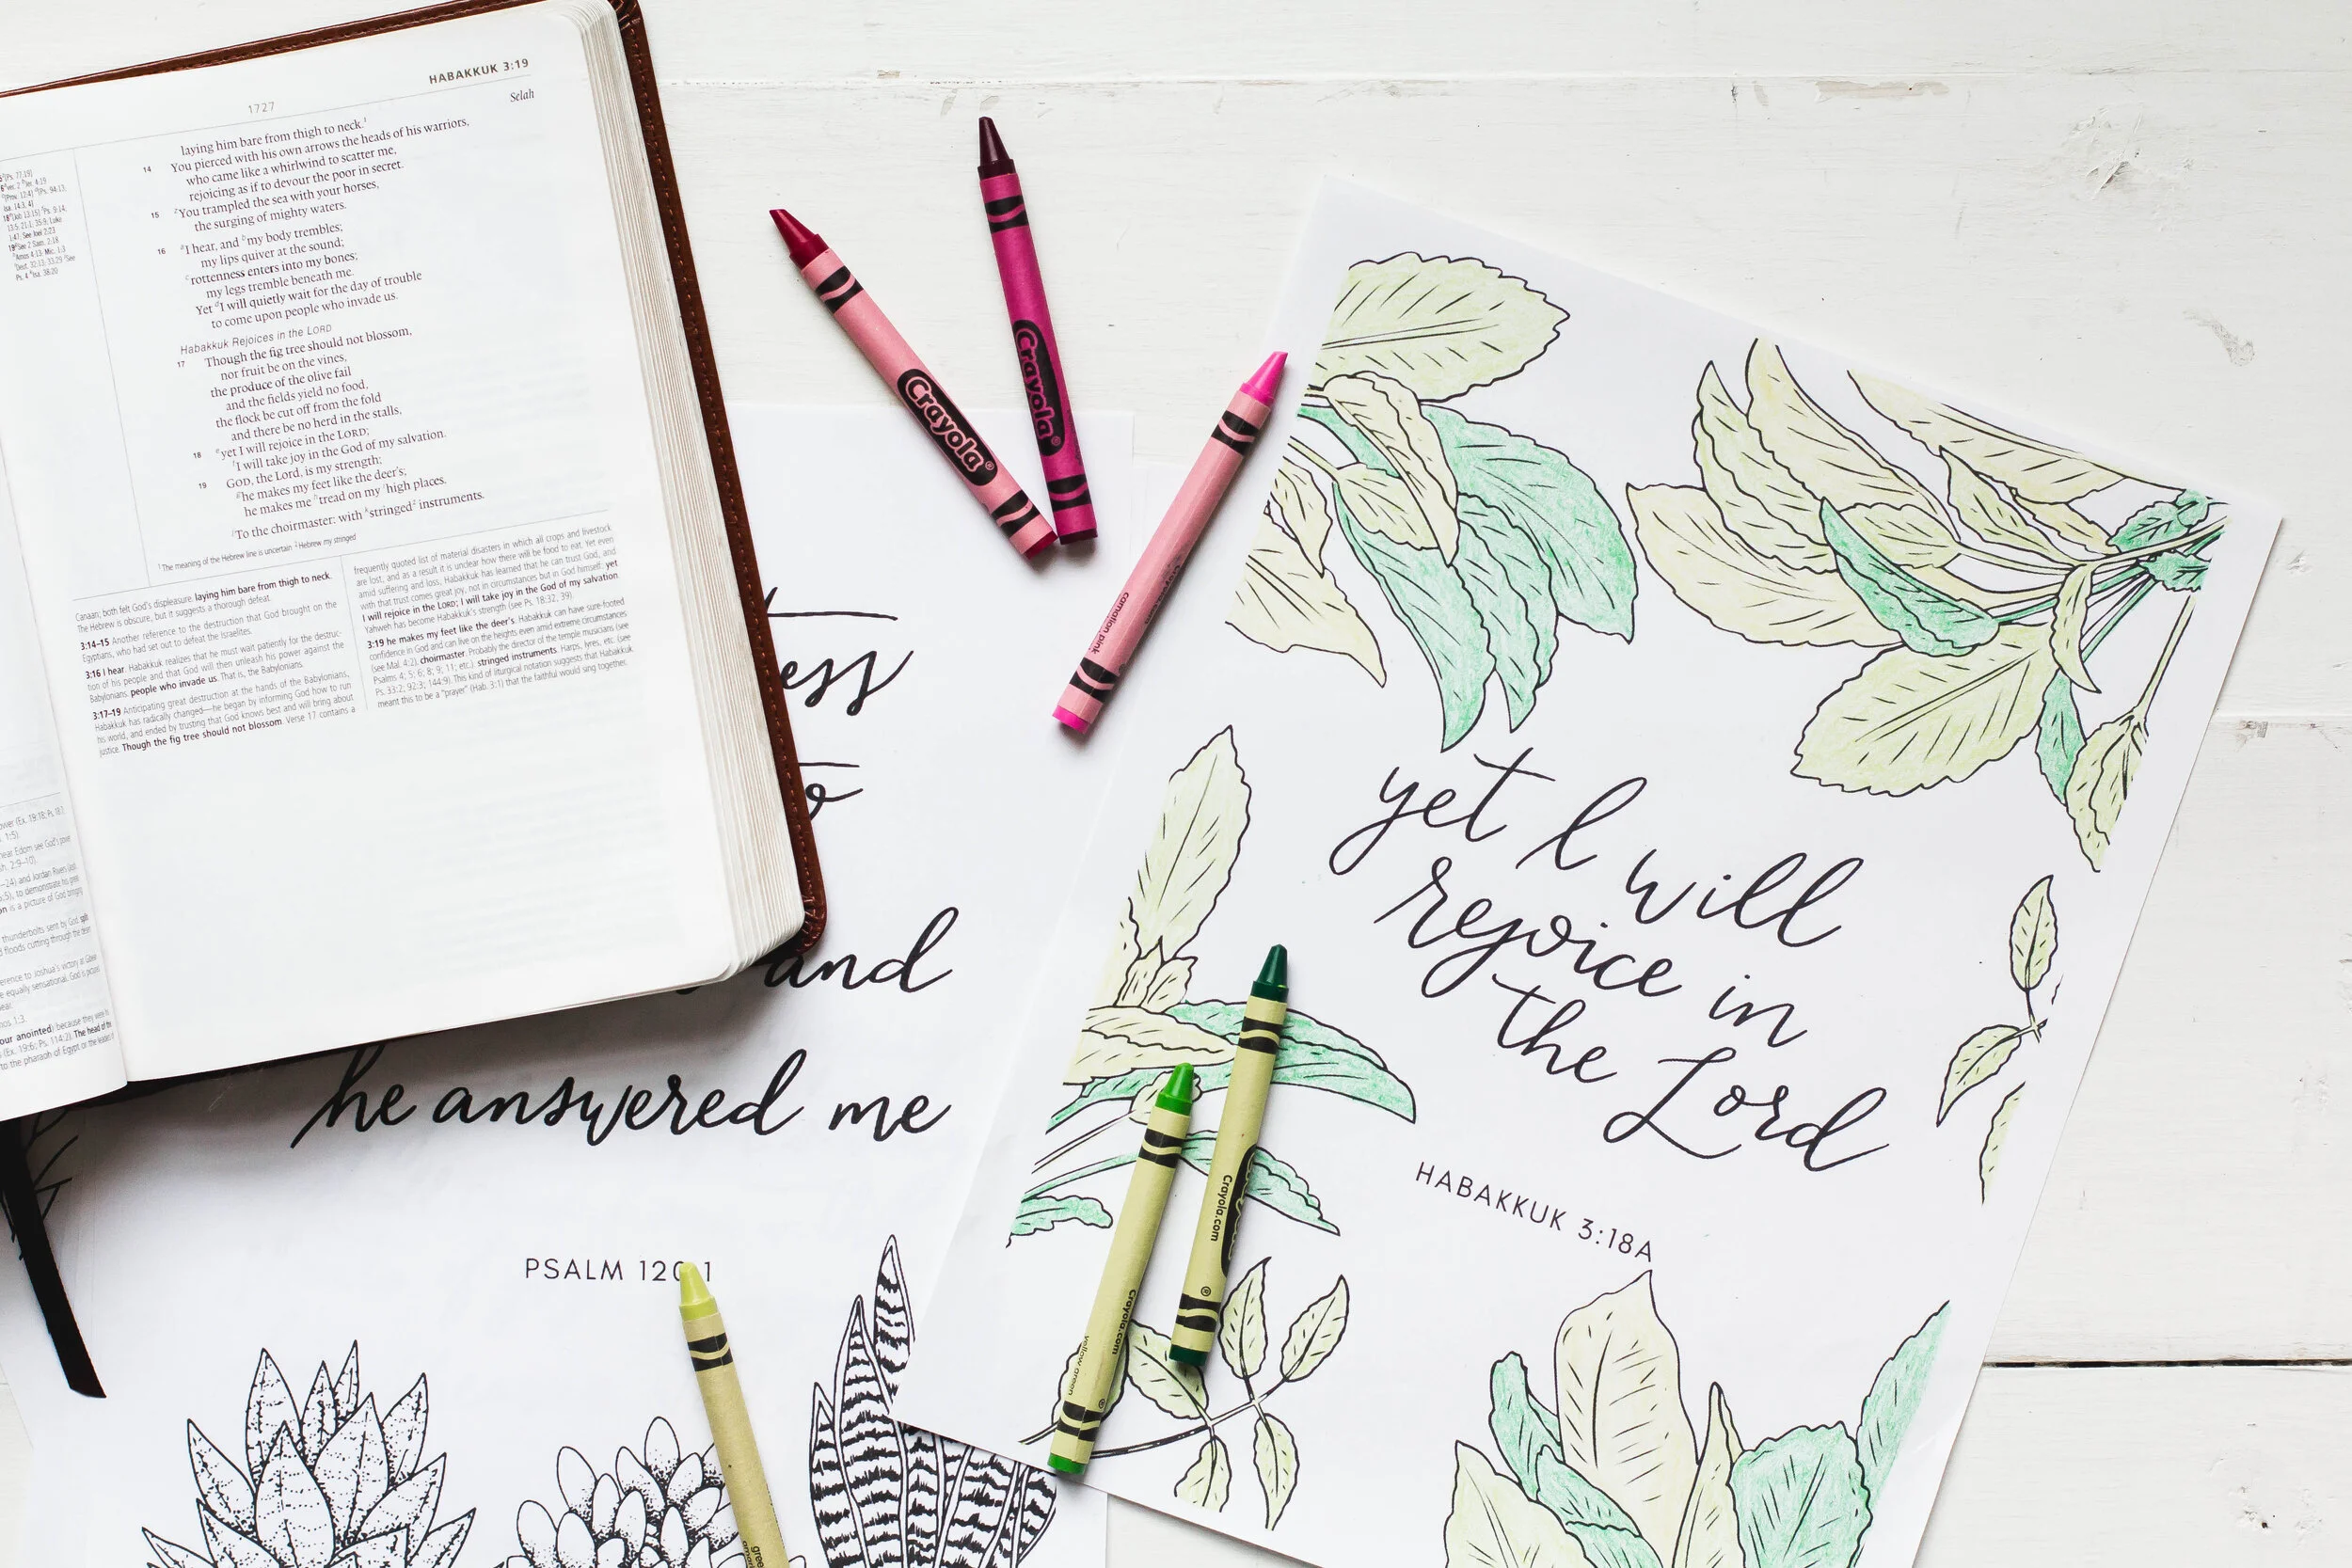 HABAKKUK 3:19
1727
Selah
laying him bare from thigh to neck.¹
14 You pierced with his own arrows the heads of his warriors,
who came like a whirlwind to scatter me,
rejoicing as if to devour the poor in secret.
15 ᶻYou trampled the sea with your horses,
the surging of mighty waters.
16 ᵃI hear, and ᵇmy body trembles;
my lips quiver at the sound;
ᶜrottenness enters into my bones;
my legs tremble beneath me.
Yet ᵈI will quietly wait for the day of trouble
to come upon people who invade us.
Habakkuk Rejoices in the LORD
17 Though the fig tree should not blossom,
nor fruit be on the vines,
the produce of the olive fail
and the fields yield no food,
the flock be cut off from the fold
and there be no herd in the stalls,
18 ᵉyet I will rejoice in the LORD;
ᶠI will take joy in the God of my salvation.
19 GOD, the Lord, is my strength;
ᵍhe makes my feet like the deer's;
he makes me ʰtread on my ⁱhigh places.
ʲTo the choirmaster: with ᵏstringed² instruments.
¹ The meaning of the Hebrew line is uncertain ² Hebrew my stringed
Canaan; both felt God's displeasure. laying him bare from thigh to neck.
The Hebrew is obscure, but it suggests a thorough defeat.
3:14–15 Another reference to the destruction that God brought on the
Egyptians, who had set out to defeat the Israelites.
3:16 I hear. Habakkuk realizes that he must wait patiently for the destruc-
tion of his people and that God will then unleash his power against the
Babylonians. people who invade us. That is, the Babylonians.
3:17–19 Anticipating great destruction at the hands of the Babylonians,
Habakkuk has radically changed—he began by informing God how to run
his world, and ended by trusting that God knows best and will bring about
justice. Though the fig tree should not blossom. Verse 17 contains a
frequently quoted list of material disasters in which all crops and livestock
are lost, and as a result it is unclear how there will be food to eat. Yet even
amid suffering and loss, Habakkuk has learned that he can trust God, and
with that trust comes great joy, not in circumstances but in God himself: yet
I will rejoice in the LORD; I will take joy in the God of my salvation.
Yahweh has become Habakkuk's strength (see Ps. 18:32, 39).
3:19 he makes my feet like the deer's. Habakkuk can have sure-footed
confidence in God and can live on the heights even amid extreme circumstances
(see Mal. 4:2). choirmaster. Probably the director of the temple musicians (see
Psalms 4; 5; 6; 8; 9; 11; etc.). stringed instruments. Harps, lyres, etc. (see
Ps. 33:2; 92:3; 144:9). This kind of liturgical notation suggests that Habakkuk
meant this to be a "prayer" (Hab. 3:1) that the faithful would sing together.
Crayola®
Crayola®
carnation pink
ess
and
he answered me
PSALM 120:1
yet I will
rejoice in
the Lord
HABAKKUK 3:18A
Crayola.com
Crayola.com
yellow green